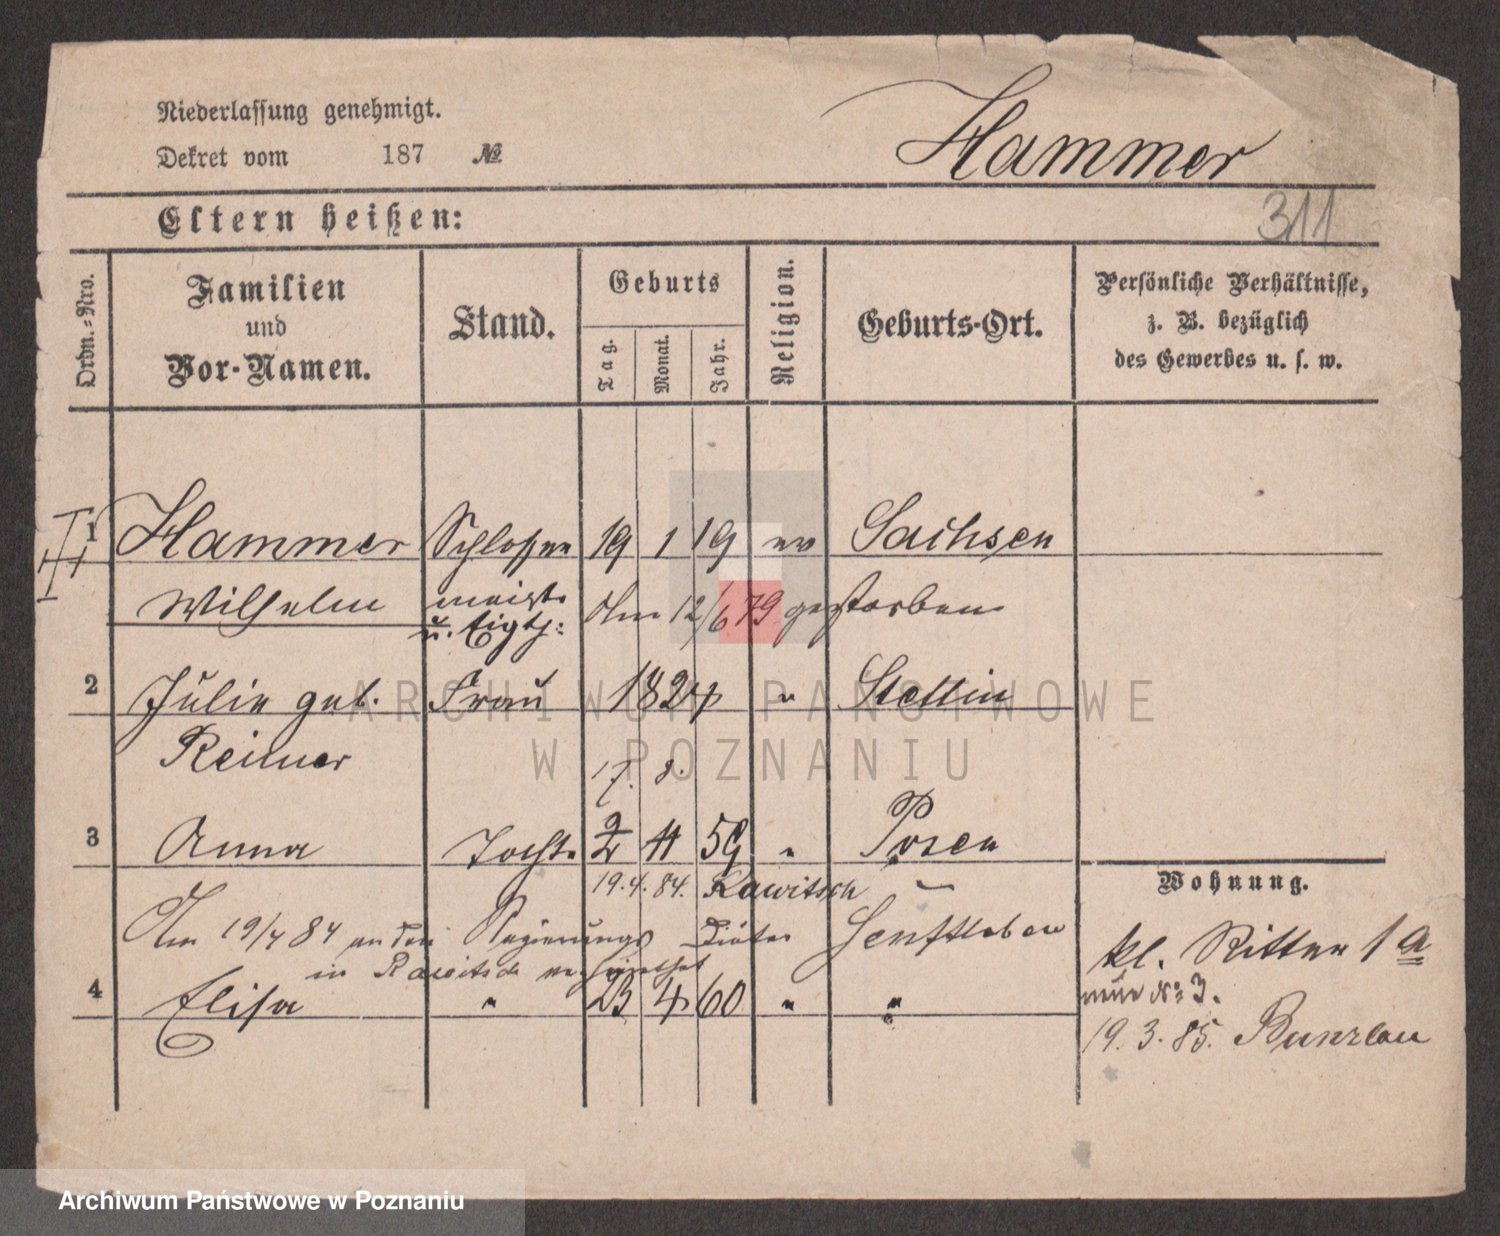 Niederlassung genehmigt.
Dekret vom 187 №
Hammer
311
Eltern heißen:
Ordn.-Nro.
Familien
und
Vor-Namen.
Stand.
Geburts
Tag.
Monat.
Jahr.
Religion.
Geburts-Ort.
Persönliche Verhältnisse,
z. B. bezüglich
des Gewerbes u. s. w.
II
1 Hammer Schlosser 19 1 19 ev Sachsen
Wilhelm meist. u. Eigth: Am 12/6 79 gestorben
2 Julie geb. Frau 1824 " Stettin
Reimer 17. 8.
3 Anna Tocht. 2 11 59 " Posen
19.4.84. Rawitsch
Am 19/4 84 an den Regierungs Diätar Senftleben
in Rawitsch verheirathet
4 Elisa " 23 4 60 " "
Wohnung.
kl. Ritter 1 a
neue № 3.
19. 3. 85. Bunzlau
ARCHIWUM PAŃSTWOWE
W POZNANIU
Archiwum Państwowe w Poznaniu